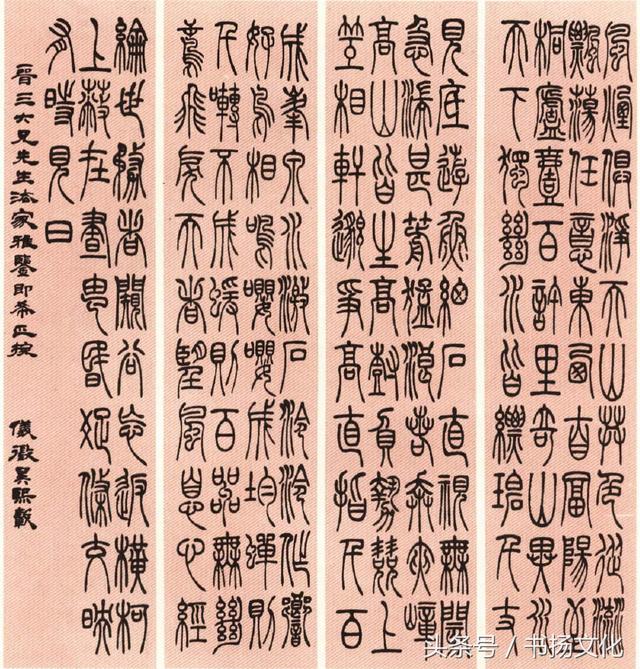 風煙俱淨天山共色從流
飄蕩任意東西自富陽至
桐廬壹百許里奇山異水
天下獨絕水皆縹碧千丈
見底遊魚細石直視無閡
急湍甚箭猛浪若奔夾嶂
高山皆生高樹負勢競上
互相軒邈爭高直指千百
成峯泉水激石泠泠作響
好鳥相鳴嚶嚶成均蟬則
千囀不 猨則百 無絕
鳶飛戾天者望風息心經
綸世務者闚谷忘返橫柯
上蔽在晝 昏疏條交映
有時見日
晉三六兄先生法家雅鑒即希正捥
儀徵吳熙載
头条号 / 书扬文化